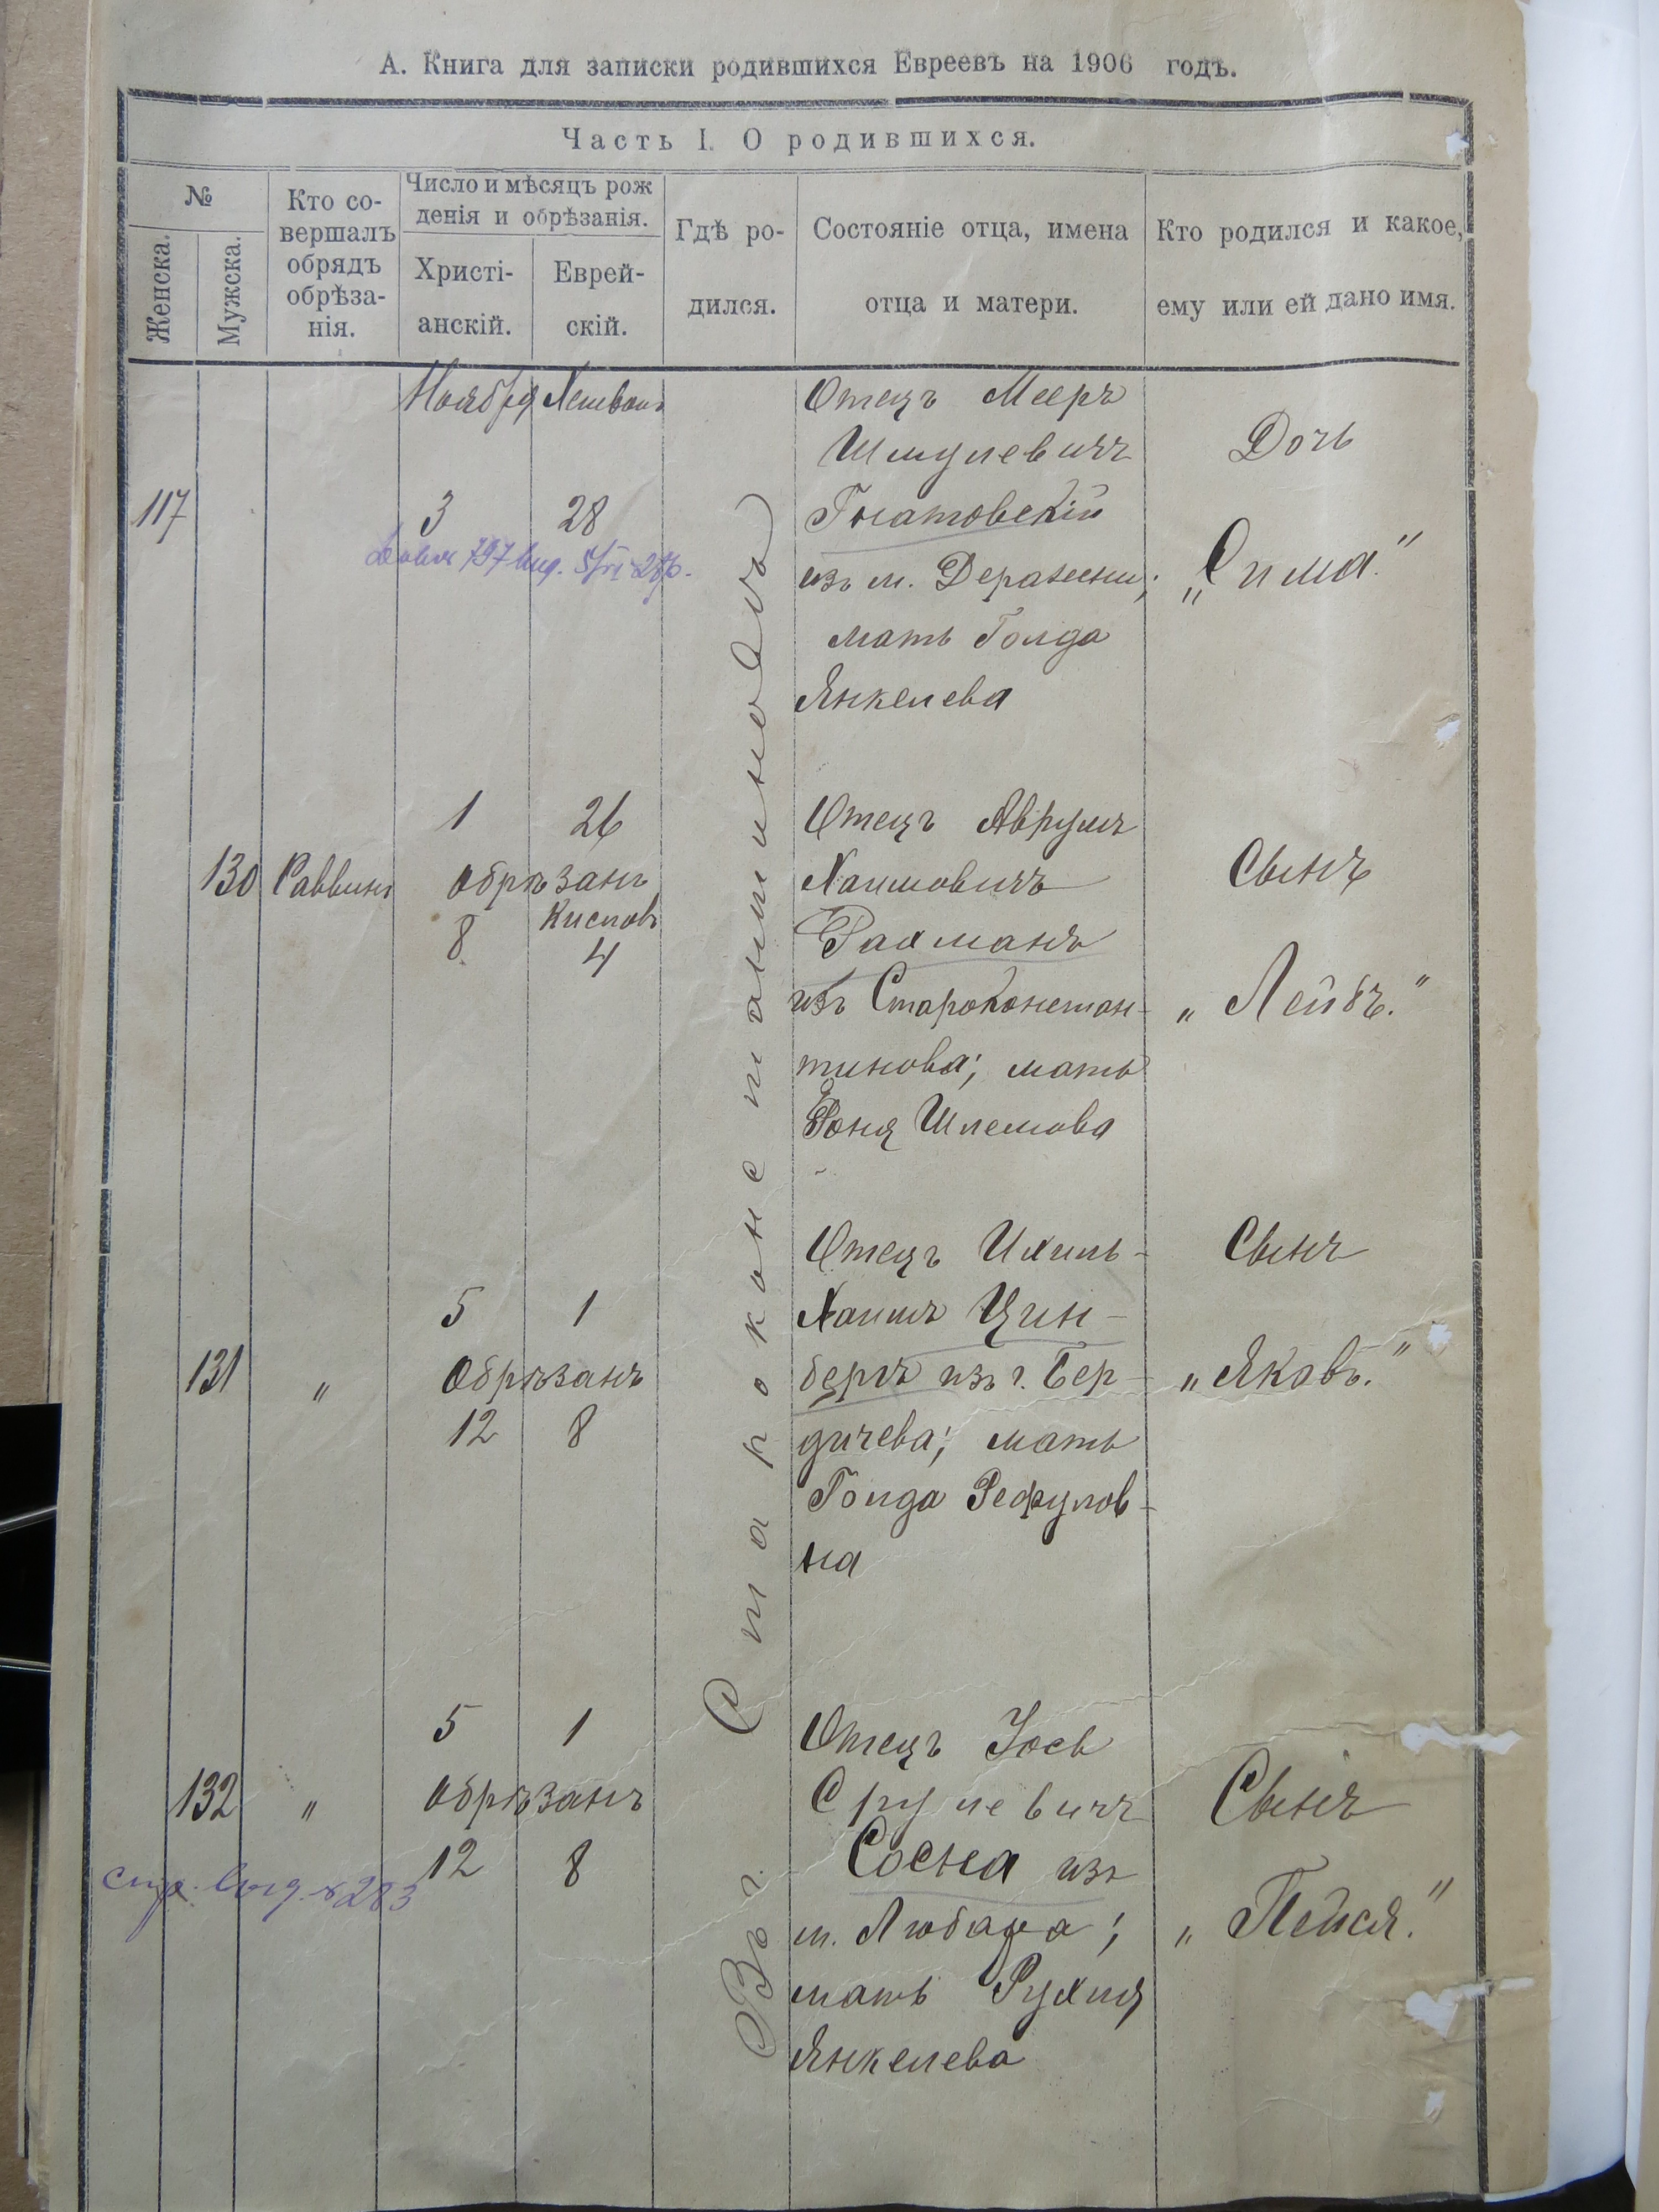 А. Книга для записки родившихся Евреевъ на 1906 годъ.
Часть I. О родившихся.
№
Женска.
Мужска.
Кто со-
вершалъ
обрядъ
обрѣза-
нія.
Число и мѣсяцъ рож
денія и обрѣзанія.
Христі-
анскій.
Еврей-
скій.
Гдѣ ро-
дился.
Состояніе отца, имена
отца и матери.
Кто родился и какое,
ему или ей дано имя.
Въ г. Староконстантиновѣ
Ноября Хешвонъ
117
3 28
Отецъ Мееръ
Шмулевичъ
изъ м. Деражни;
мать Голда
Янкелева
Дочь
„Сима."
130 Раввинъ
1 26
Обрѣзанъ
Кисловъ
8 4
Отецъ Аврумъ
Хаимовичъ
Рахманъ
изъ Староконстан-
тинова; мать
Роня Шлемова
Сынъ
„Лейбъ."
131 „
5 1
Обрѣзанъ
12 8
Отецъ Ихиль-
Хаимъ Цин-
бергъ изъ г. Бер-
дичева; мать
Голда Рефулов-
на
Сынъ
„Яковъ."
132 „
5 1
Обрѣзанъ
12 8
Отецъ Іось
Срулевичъ
Сосна изъ
м. Любара;
мать Рухля
Янкелева
Сынъ
„Пейся."
выд. № 283